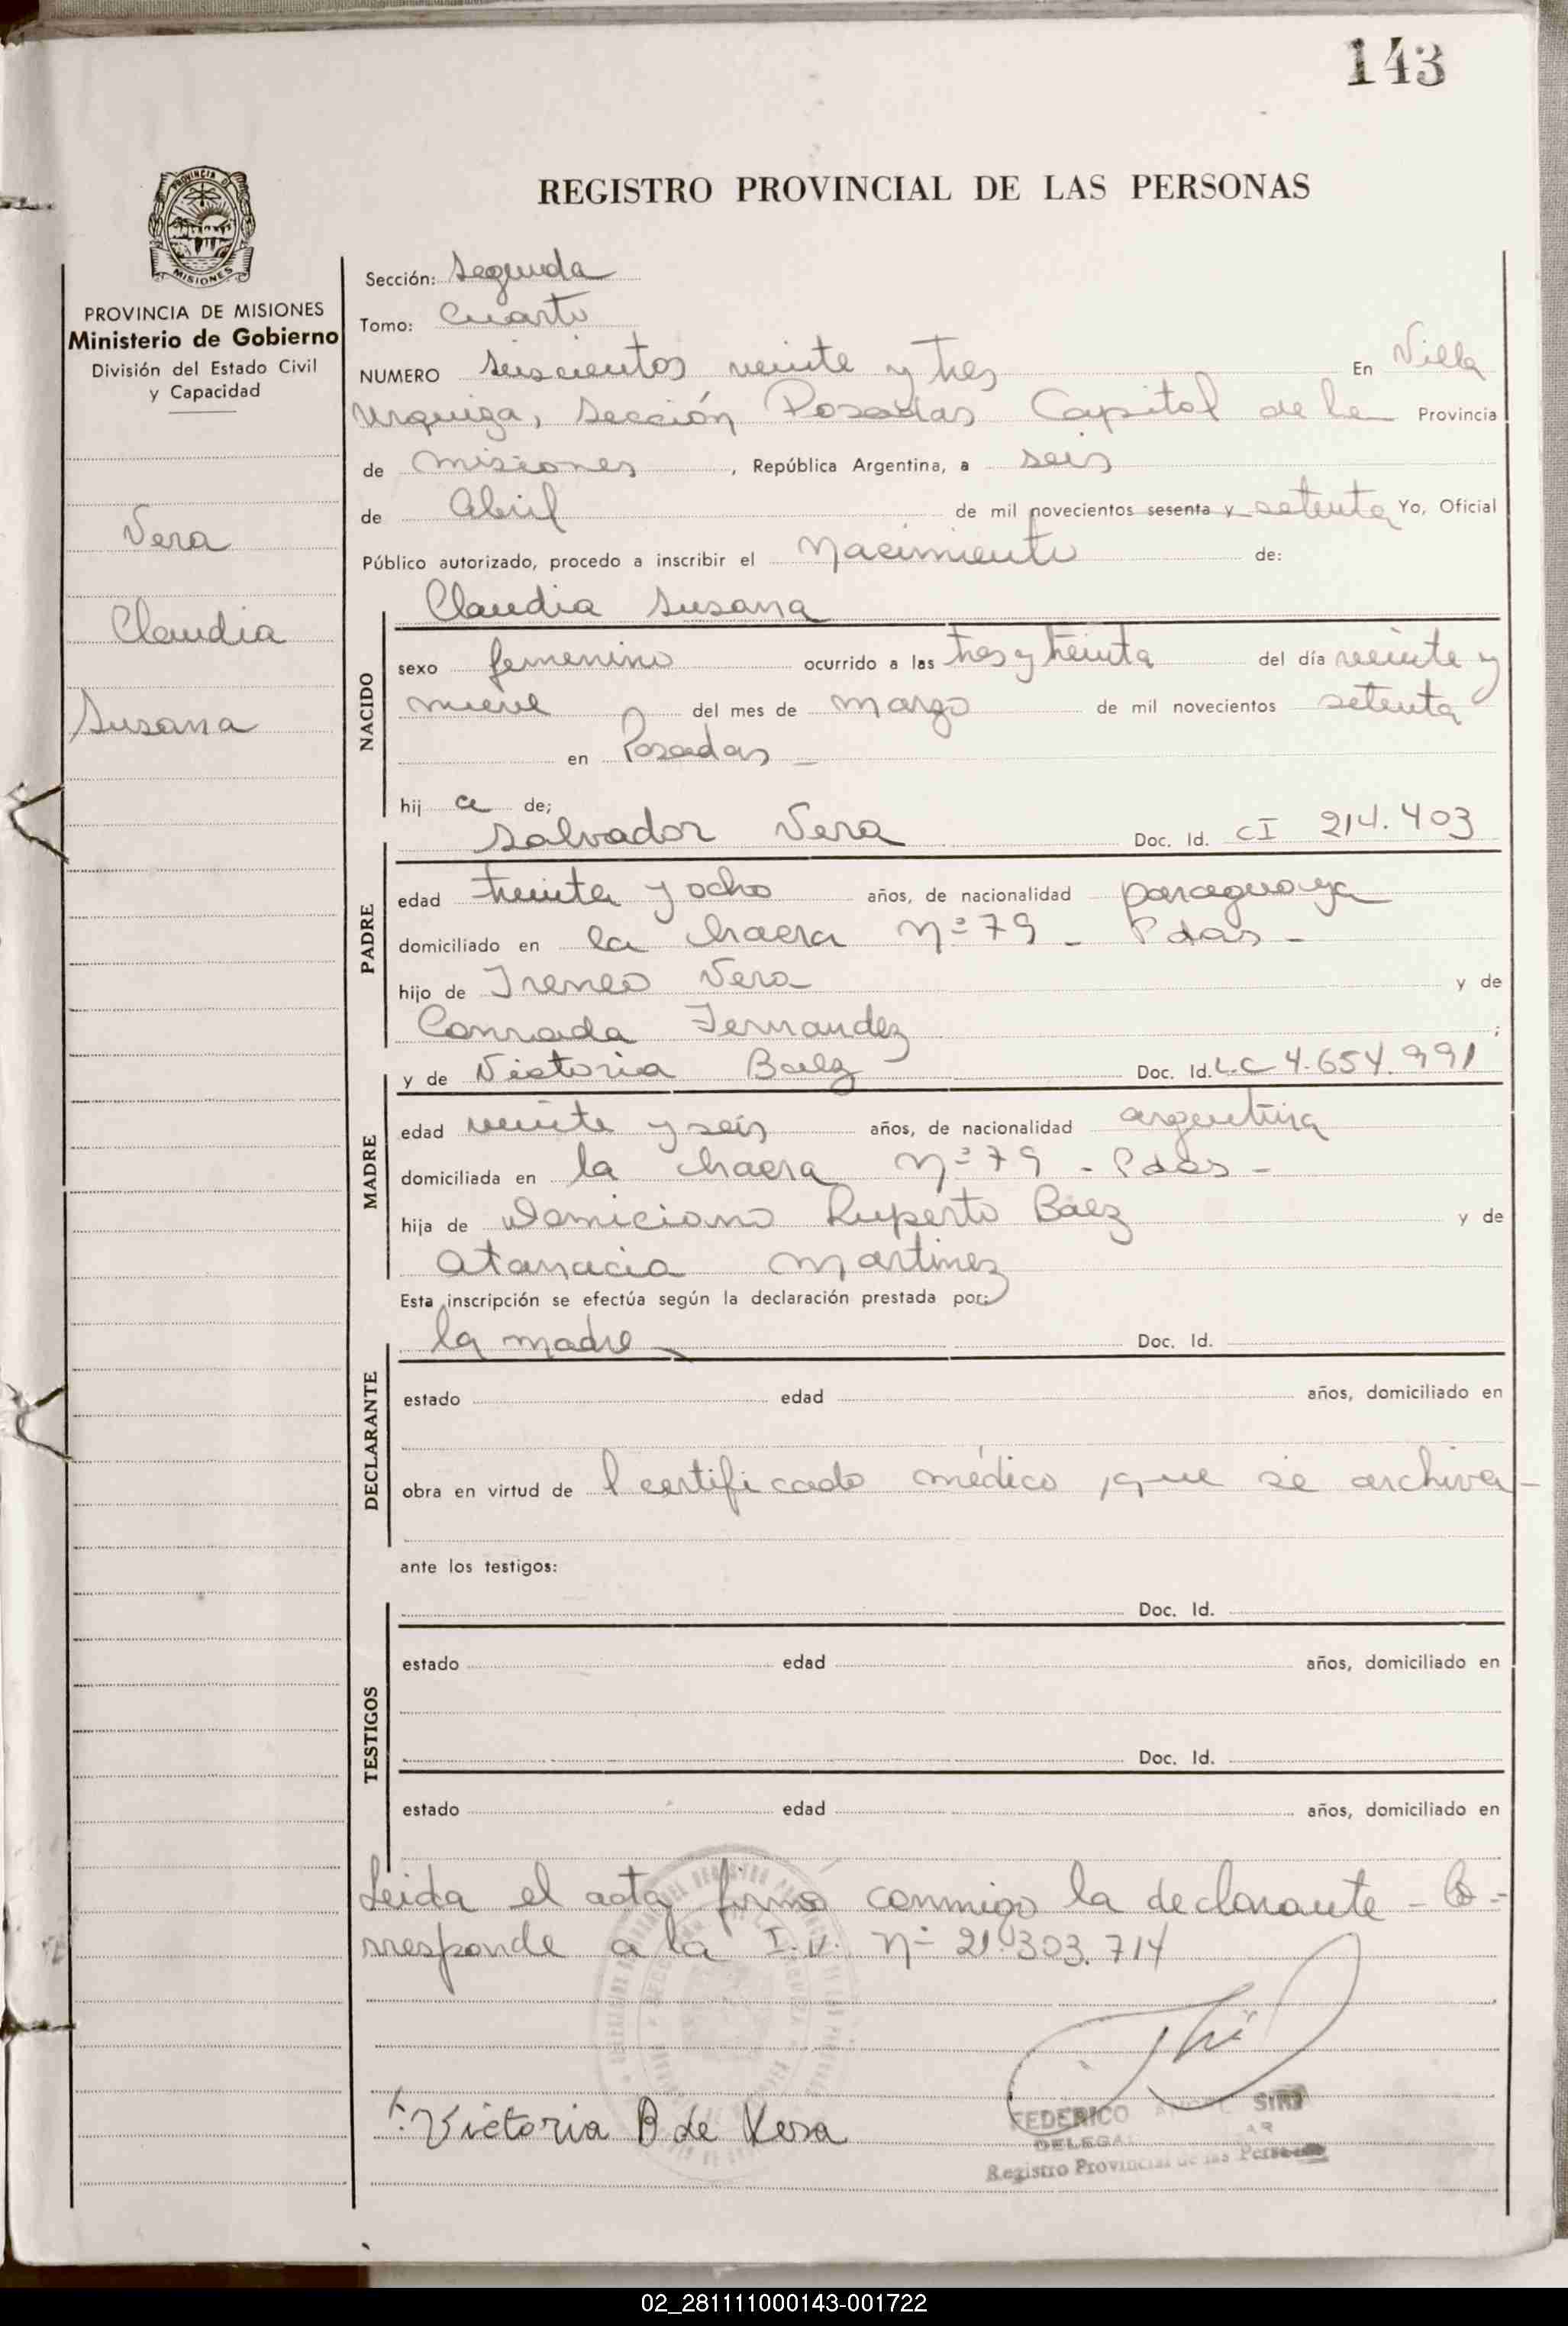 143
PROVINCIA DE
MISIONES
REGISTRO PROVINCIAL DE LAS PERSONAS
PROVINCIA DE MISIONES
Ministerio de Gobierno
División del Estado Civil
y Capacidad
Vera
Claudia
Susana
Sección: Segunda
Tomo: Cuarto
NUMERO seiscientos veinte y tres En Villa
Urquiza, Sección Posadas Capital de la Provincia
de misiones, República Argentina, a seis
de Abril de mil novecientos sesenta y setenta Yo, Oficial
Público autorizado, procedo a inscribir el Nacimiento de:
Claudia Susana
NACIDO
sexo femenino ocurrido a las tres y treinta del día veinte y
nueve del mes de marzo de mil novecientos setenta
en Posadas -
hij a de;
Salvador Vera Doc. Id. CI 214.403
PADRE
edad treinta y ocho años, de nacionalidad paraguaya
domiciliado en la chacra Nº 79 - Pdas -
hijo de Ireneo Vera y de
Conrada Fernandez ;
y de Victoria Baez Doc. Id. L.C 4.654.991
MADRE
edad veinte y seis años, de nacionalidad argentina
domiciliada en la chacra Nº 79 - Pdas -
hija de Domiciano Ruperto Baez y de
Atanacia Martinez
Esta inscripción se efectúa según la declaración prestada por:
la madre Doc. Id.
DECLARANTE
estado edad años, domiciliado en
obra en virtud de l certificado médico, que se archiva -
ante los testigos:
Doc. Id.
TESTIGOS
estado edad años, domiciliado en
Doc. Id.
estado edad años, domiciliado en
Leida el acta firmó conmigo la declarante - Co=
rresponde a la I.U. Nº 21.303.714
Victoria B de Vera
FEDERICO
Registro Provincial de las Personas
02_281111000143-001722